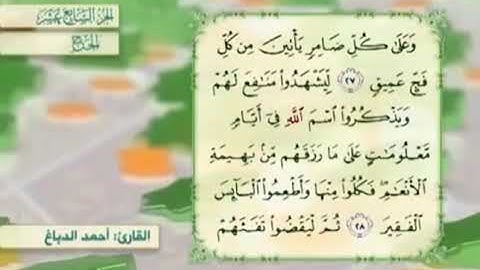 الجزء السابع عشر
الحج
وَعَلَىٰ كُلِّ ضَامِرٍ يَأْتِينَ مِن كُلِّ
فَجٍّ عَمِيقٍ ٢٧ لِّيَشْهَدُوا۟ مَنَـٰفِعَ لَهُمْ
وَيَذْكُرُوا۟ ٱسْمَ ٱللَّهِ فِىٓ أَيَّامٍ
مَّعْلُومَـٰتٍ عَلَىٰ مَا رَزَقَهُم مِّنۢ بَهِيمَةِ
ٱلْأَنْعَـٰمِ ۖ فَكُلُوا۟ مِنْهَا وَأَطْعِمُوا۟ ٱلْبَآئِسَ
ٱلْفَقِيرَ ٢٨ ثُمَّ لْيَقْضُوا۟ تَفَثَهُمْ
القارئ: أحمد الدباغ